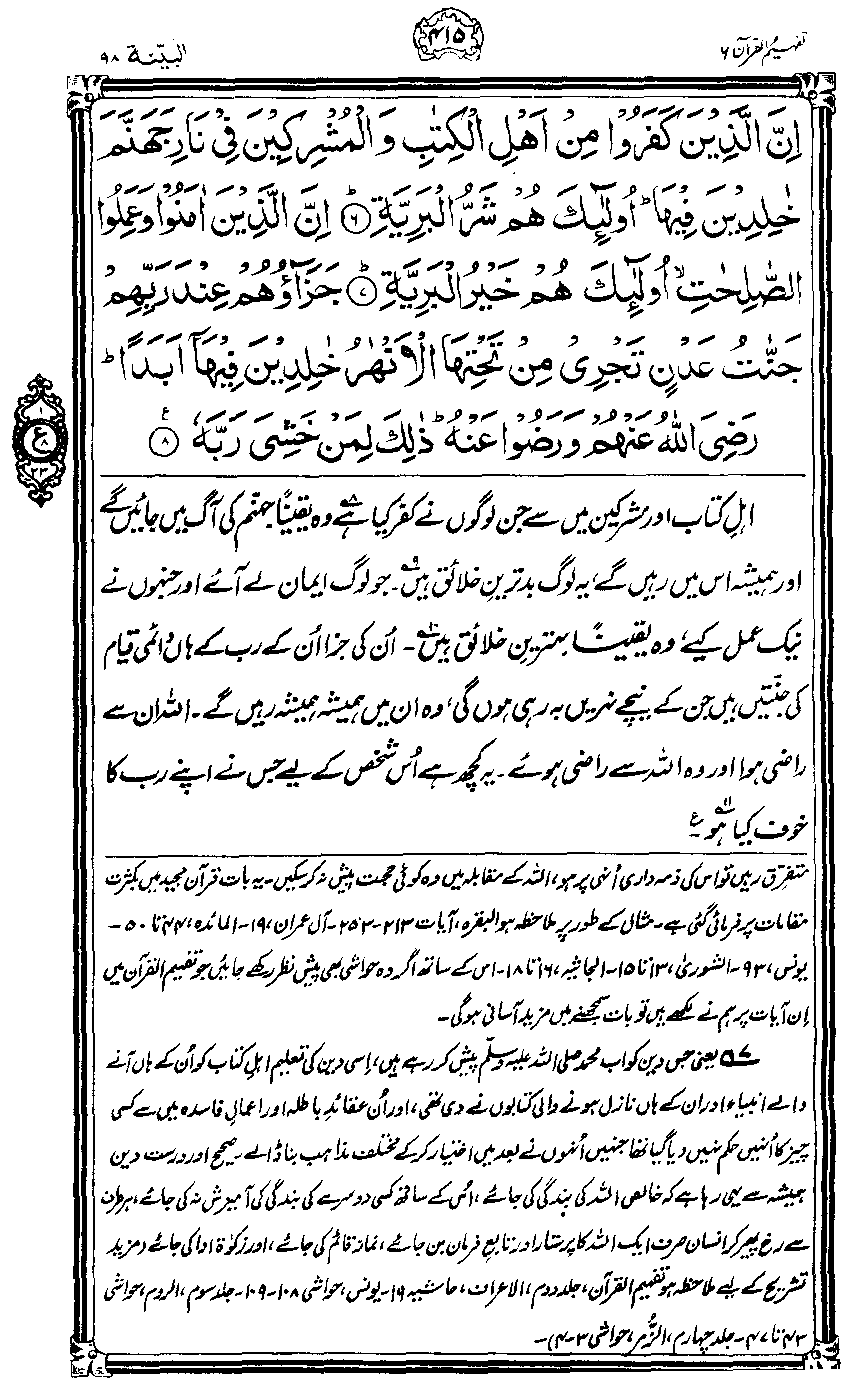 تفہیم القرآن ۶
۴۱۵
البیّنۃ ۹۸
اِنَّ الَّذِیْنَ كَفَرُوْا مِنْ اَهْلِ الْكِتٰبِ وَ الْمُشْرِكِیْنَ فِیْ نَارِ جَهَنَّمَ
خٰلِدِیْنَ فِیْهَاؕ اُولٰٓىِٕكَ هُمْ شَرُّ الْبَرِیَّةِؕ۶ اِنَّ الَّذِیْنَ اٰمَنُوْا وَ عَمِلُوا
الصّٰلِحٰتِۙ اُولٰٓىِٕكَ هُمْ خَیْرُ الْبَرِیَّةِؕ۷ جَزَآؤُهُمْ عِنْدَ رَبِّهِمْ
جَنّٰتُ عَدْنٍ تَجْرِیْ مِنْ تَحْتِهَا الْاَنْهٰرُ خٰلِدِیْنَ فِیْهَاۤ اَبَدًاؕ
رَضِیَ اللّٰهُ عَنْهُمْ وَ رَضُوْا عَنْهُؕ ذٰلِكَ لِمَنْ خَشِیَ رَبَّهٗ۠۸
۱
ع
۸
۲۳
اہلِ کتاب اور مشرکین میں سے جن لوگوں نے کفر کیا ہے۸ وہ یقیناً جہنّم کی آگ میں جائیں گے
اور ہمیشہ اس میں رہیں گے، یہ لوگ بدترین خلائق ہیں۹۔ جو لوگ ایمان لے آئے اور جنہوں نے
نیک عمل کیے، وہ یقیناً بہترین خلائق ہیں۱۰۔ اُن کی جزا اُن کے رب کے ہاں دائمی قیام
کی جنّتیں ہیں جن کے نیچے نہریں بہ رہی ہوں گی، وہ ان میں ہمیشہ ہمیشہ رہیں گے۔ اللہ ان سے
راضی ہوا اور وہ اللہ سے راضی ہوئے۔ یہ کچھ ہے اُس شخص کے لیے جس نے اپنے رب کا
خوف کیا ہو۱۱۔ ع
متفرق رہیں تو اس کی ذمہ داری اُنہی پر ہو، اللہ کے مقابلہ میں وہ کوئی حجت پیش نہ کر سکیں۔ یہ بات قرآن مجید میں بکثرت
مقامات پر فرمائی گئی ہے۔ مثال کے طور پر ملاحظہ ہو البقرہ، آیات ۲۱۳-۲۵۳۔ آل عمران، ۱۹۔ المائدہ، ۴۴ تا ۵۰۔
یونس، ۹۳۔ الشوریٰ، ۱۳ تا ۱۵۔ الجاثیہ، ۱۶ تا ۱۸۔ اس کے ساتھ اگر وہ حواشی بھی پیش نظر رکھے جائیں جو تفہیم القرآن میں
اِن آیات پر ہم نے لکھے ہیں تو بات سمجھنے میں مزید آسانی ہوگی۔
۷ یعنی جس دین کو اب محمد صلی اللہ علیہ وسلّم پیش کر رہے ہیں، اِسی دین کی تعلیم اہلِ کتاب کو اُن کے ہاں آنے
والے انبیاء اور ان کے ہاں نازل ہونے والی کتابوں نے دی تھی، اور اُن عقائدِ باطلہ اور اعمالِ فاسدہ میں سے کسی
چیز کا اُنہیں حکم نہیں دیا گیا تھا جنہیں اُنہوں نے بعد میں اختیار کر کے مختلف مذاہب بنا ڈالے۔ صحیح اور درست دین
ہمیشہ سے یہی رہا ہے کہ خالص اللہ کی بندگی کی جائے، اُس کے ساتھ کسی دوسرے کی بندگی کی آمیزش نہ کی جائے، ہر طرف
سے رخ پھیر کر انسان صرف ایک اللہ کا پرستار اور تابعِ فرمان بن جائے، نماز قائم کی جائے، اور زکوٰۃ ادا کی جائے (مزید
تشریح کے لیے ملاحظہ ہو تفہیم القرآن، جلد دوم، الاعراف، حاشیہ ۱۹۔ یونس، حواشی ۱۰۸-۱۰۹۔ جلد سوم، الروم، حواشی
۴۳ تا ۴۷۔ جلد چہارم، الزُّمر، حواشی ۳-۴)۔